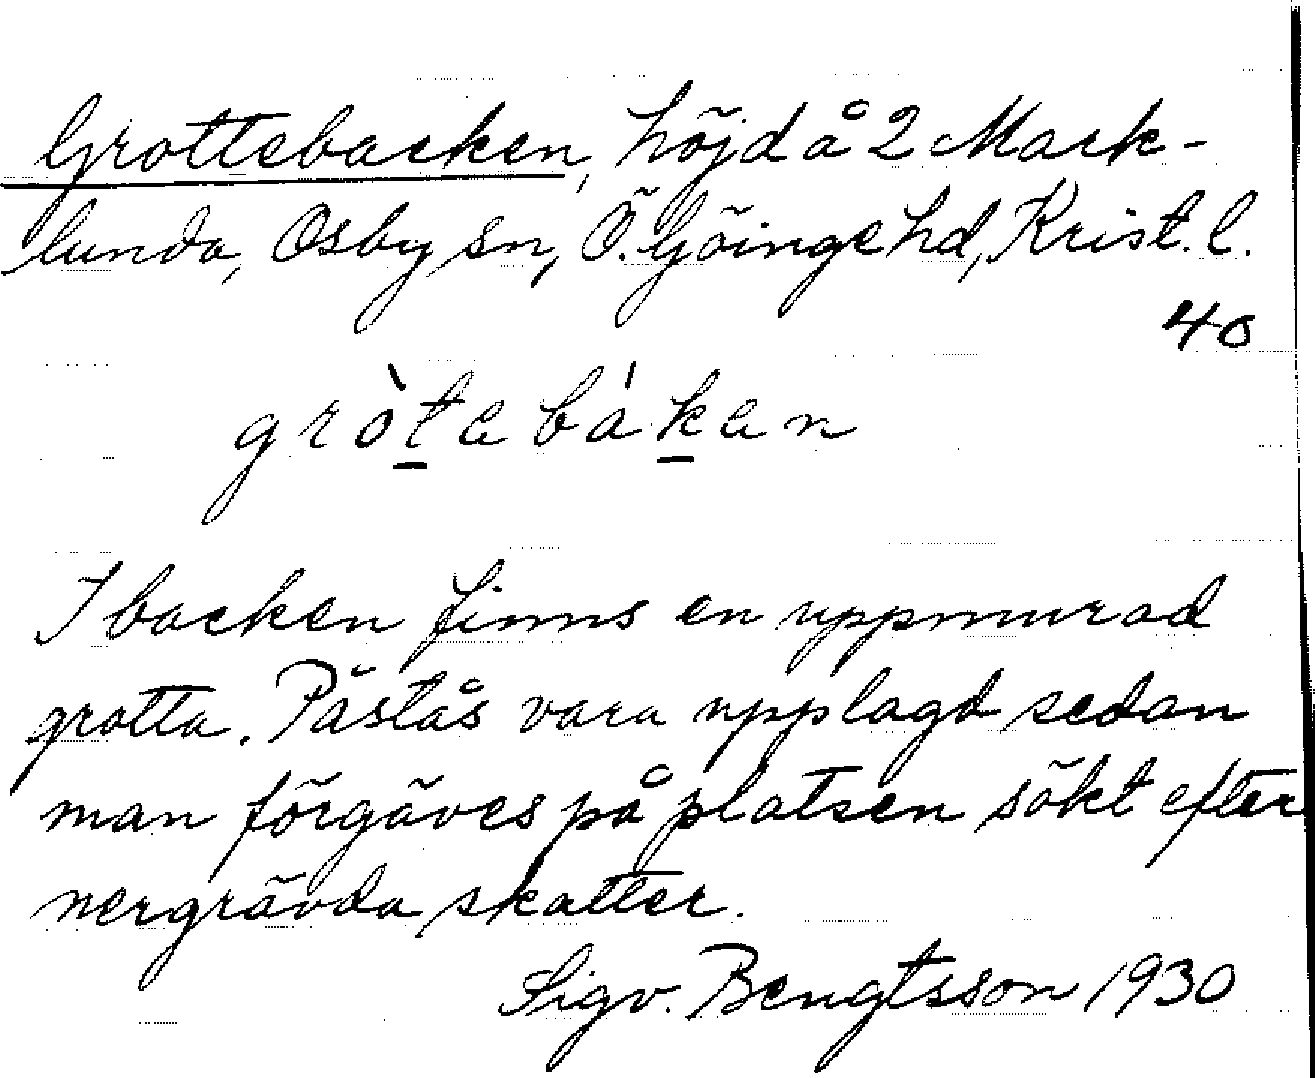 Grottebacken, höjd å 2 Mark-
lunda, Osby sn, Ö. Göinge hd, Krist. l.
40
gròt̲ebák̲en
I backen finns en uppmurad
grotta. Påstås vara upplagd sedan
man förgäves på platsen sökt efter
nergrävda skatter.
Sigv. Bengtsson 1930